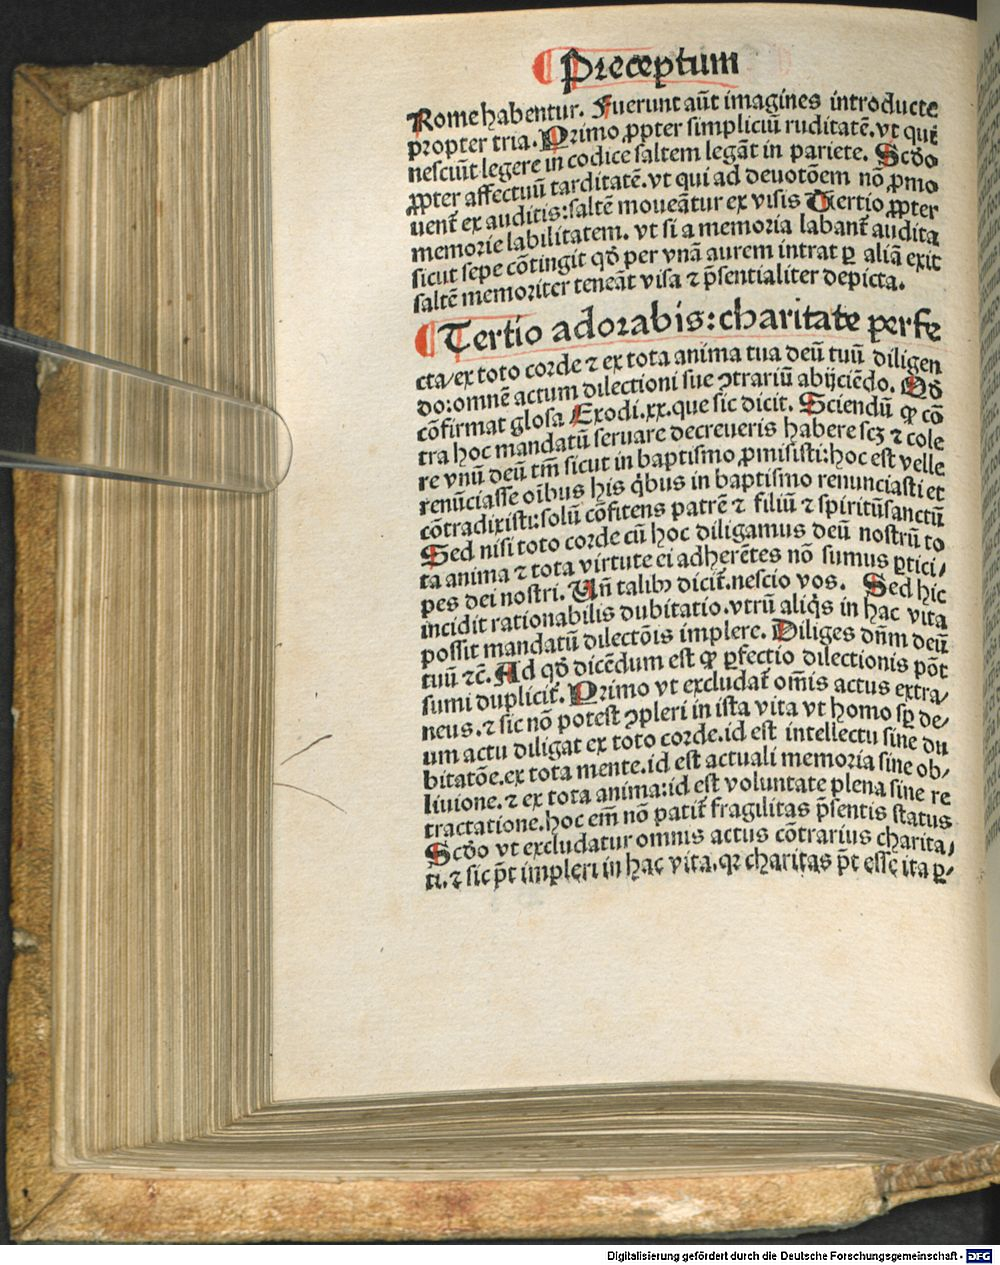 Preceptum
Rome habentur. Fuerunt aūt imagines introducte
propter tria. Primo ꝓpter simpliciū ruditatē. vt qui
nesciūt legere in codice saltem legāt in pariete. Scďo
ꝓpter affectuū tarditatē. vt qui ad deuotōem nō ꝓmo
uent̄ ex auditis: saltē moueātur ex visis Tertio ꝓpter
memorie labilitatem. vt si a memoria labant̄ audita
sicut sepe cōtingit qď per vnā aurem intrat ꝑ aliā exit
saltē memoriter teneāt visa ⁊ p̄sentialiter depicta.
Tertio adorabis: charitate perfe
cta/ex toto corde ⁊ ex tota anima tua deū tuū diligen
do: omnē actum dilectioni sue ꝯtrariū abijciēdo. Qď
cōfirmat glosa Exodi. xx. que sic dicit. Sciendū ꝙ cō
tra hoc mandatū seruare decreueris habere scꝫ ⁊ cole
re vnū deū tm̄ sicut in baptismo ꝓmisisti: hoc est velle
renūciasse oībus his q̇bus in baptismo renunciasti et
cōtradixisti: solū cōfitens patrē ⁊ filiū ⁊ spiritūsanctū
Sed nisi toto corde cū hoc diligamus deū nostrū to
ta anima ⁊ tota virtute ei adherētes nō sumus ꝑtici/
pes dei nostri. Vn̄ talibꝰ dicit̄. nescio vos. Sed hic
incidit rationabilis dubitatio. vtrū aliq̇s in hac vita
possit mandatū dilectōis implere. Diliges dn̄m deū
tuū ⁊c̄. Ad qď dicēdum est ꝙ ꝑfectio dilectionis pōt
sumi duplicit̄. Primo vt excludat̄ om̄is actus extra/
neus. ⁊ sic nō potest ꝯpleri in ista vita vt homo sꝑ de/
um actu diligat ex toto corde. id est intellectu sine du
bitatōe. ex tota mente. id est actuali memoria sine ob/
liuione. ⁊ ex tota anima: id est voluntate plena sine re
tractatione. hoc em̄ nō patit̄ fragilitas p̄sentis status
Scďo vt excludatur omnis actus cōtrarius charita/
ti. ⁊ sic p̄t impleri in hac vita. qꝛ charitas p̄t esse ita ꝑ/
Digitalisierung gefördert durch die Deutsche Forschungsgemeinschaft - DFG